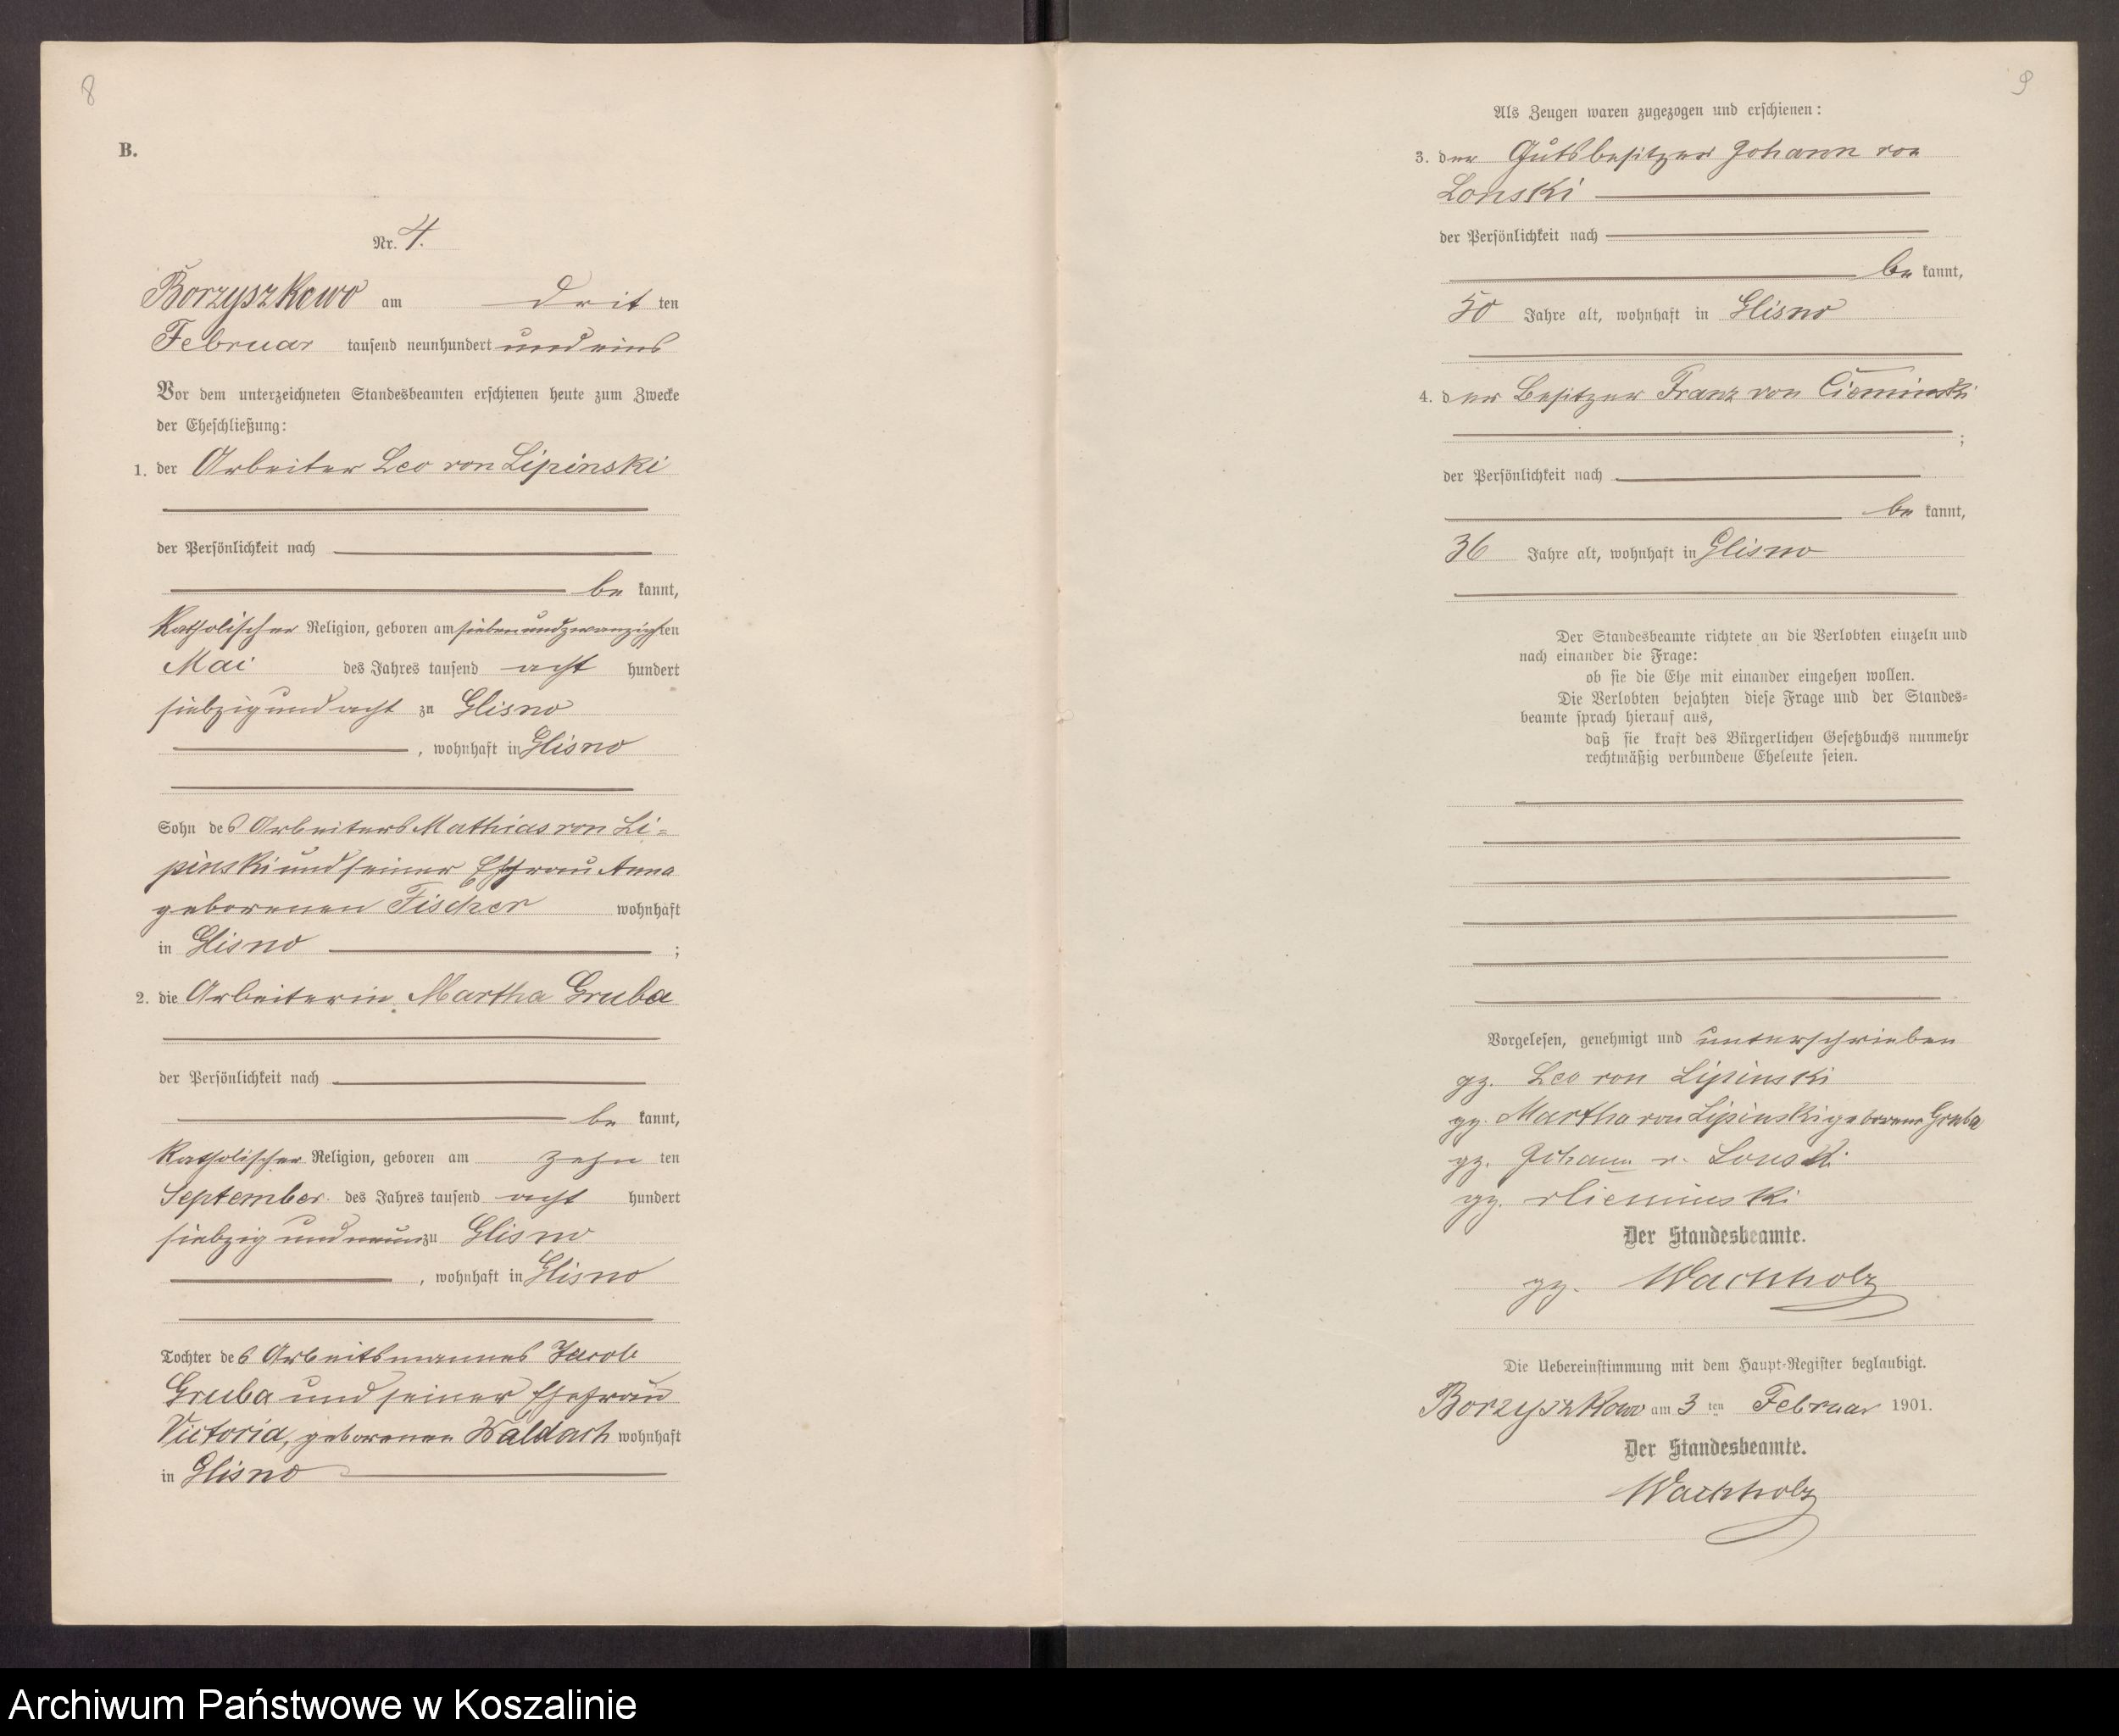 8
B.
Nr. 4.
Borzyszkowo am drit ten
Februar tausend neunhundert und eins
Vor dem unterzeichneten Standesbeamten erschienen heute zum Zwecke
der Eheschließung:
1. der Arbeiter Leo von Lipinski
der Persönlichkeit nach
be kannt,
katholischer Religion, geboren am siebenundzwanzigsten
Mai des Jahres tausend acht hundert
siebzig und acht zu Glisno
, wohnhaft in Glisno
Sohn des Arbeiters Mathias von Li=
pinski und seiner Ehefrau Anna
geborenen Fischer wohnhaft
in Glisno ;
2. die Arbeiterin Martha Gruba
der Persönlichkeit nach
be kannt,
katholischer Religion, geboren am zehn ten
September des Jahres tausend acht hundert
siebzig und neun zu Glisno
, wohnhaft in Glisno
Tochter des Arbeitsmannes Jacob
Gruba und seiner Ehefrau
Victoria, geborenen Waldach wohnhaft
in Glisno
9
Als Zeugen waren zugezogen und erschienen:
3. der Gutsbesitzer Johann von
Lonski
der Persönlichkeit nach
be kannt,
50 Jahre alt, wohnhaft in Glisno
4. der Besitzer Franz von Cieminski
;
der Persönlichkeit nach
be kannt,
36 Jahre alt, wohnhaft in Glisno
Der Standesbeamte richtete an die Verlobten einzeln und
nach einander die Frage:
ob sie die Ehe mit einander eingehen wollen.
Die Verlobten bejahten diese Frage und der Standes=
beamte sprach hierauf aus,
daß sie kraft des Bürgerlichen Gesetzbuchs nunmehr
rechtmäßig verbundene Eheleute seien.
Vorgelesen, genehmigt und unterschrieben
gz. Leo von Lipinski
gz. Martha von Lipinski geborene Gruba
gz. Johann v. Lonski
gz. v Cieminski
Der Standesbeamte.
gz. Wachholz
Die Uebereinstimmung mit dem Haupt-Register beglaubigt.
Borzyszkowo am 3 ten Februar 1901.
Der Standesbeamte.
Wachholz
Archiwum Państwowe w Koszalinie